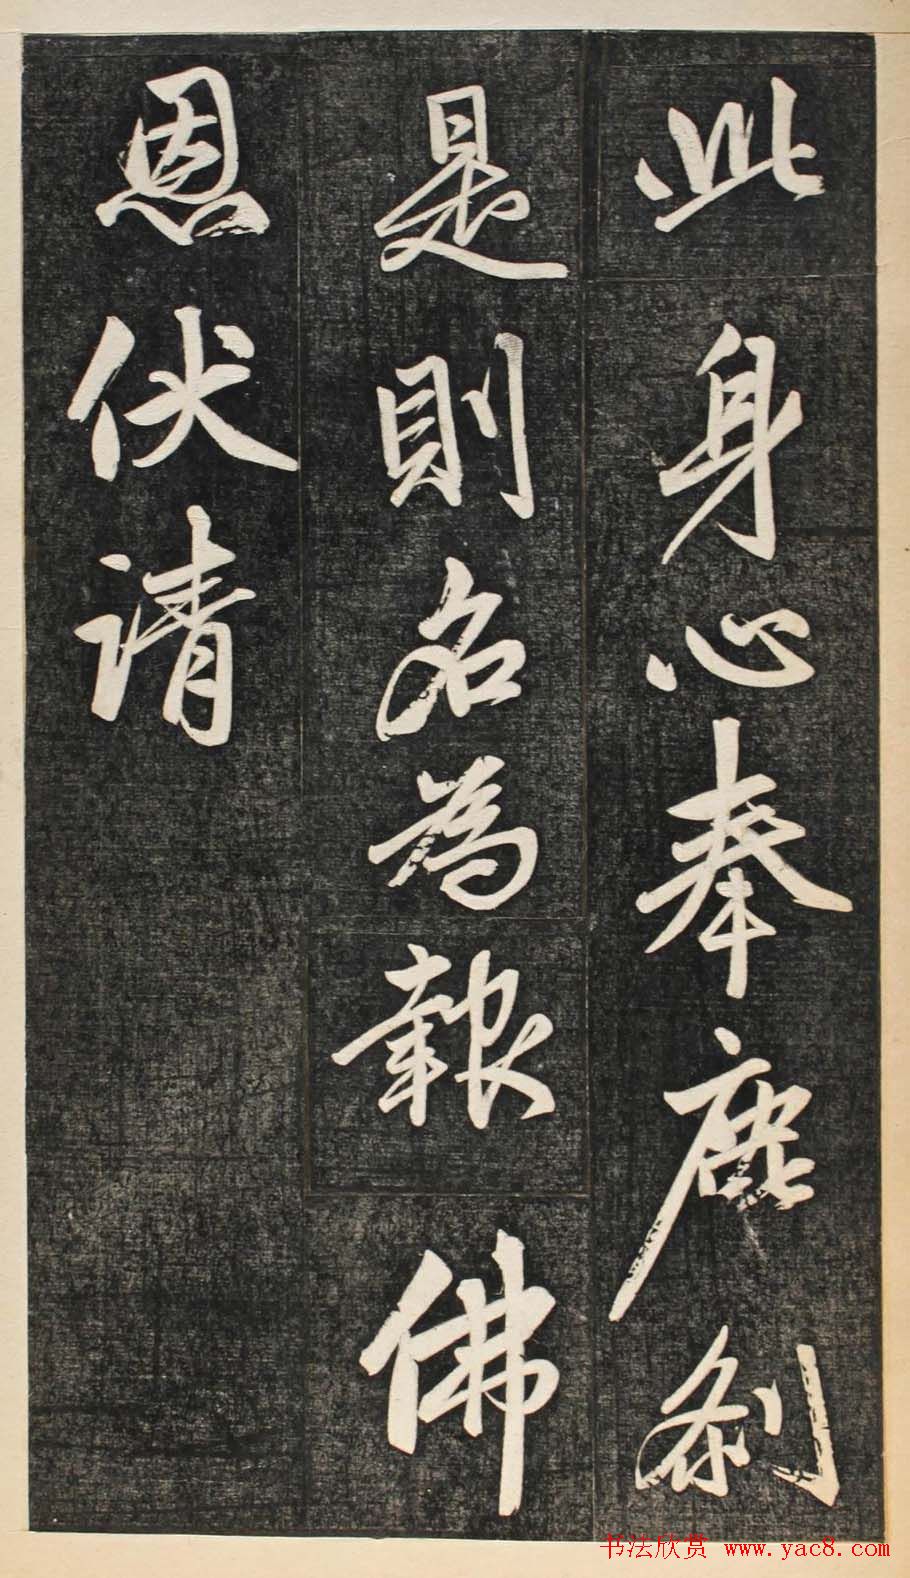 此身心奉塵刹
是則名為報佛
恩伏請
书法欣赏 www.yac8.com